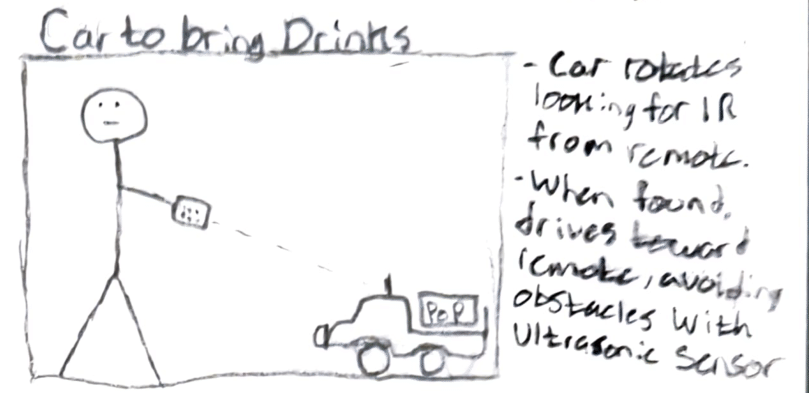 Car to bring Drinks
- Car rotates
looking for IR
from remote.
- When found,
drives toward
remote, avoiding
obstacles with
Ultrasonic Sensor
POP